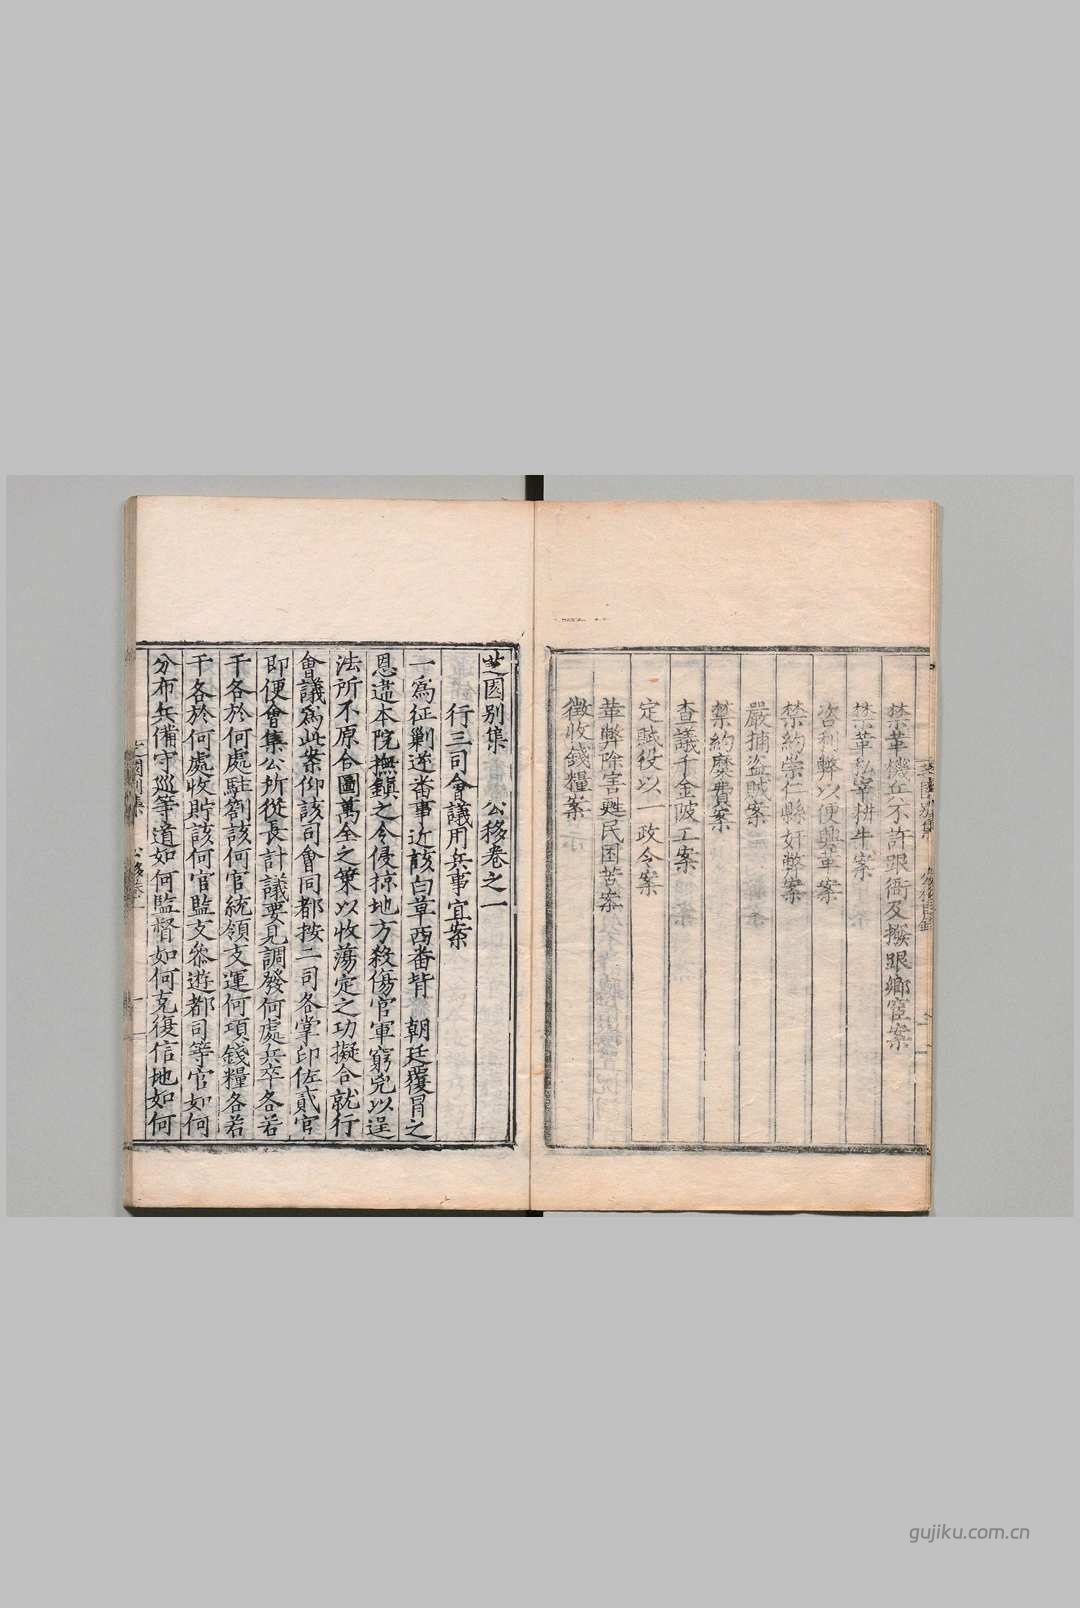 禁革機兵不許跟衙及撥跟鄉宦案
禁革私宰耕牛案
咨利弊以便興革案
禁約崇仁縣奸弊案
嚴捕盜賊案
禁約糜費案
查議千金陂工案
定賦役以一政令案
革弊除害甦民困苦案
徵收錢糧案
芝園别集 公移卷之一
行三司會議用兵事宜案
一為征剿逆畨事近該白草西畨背 朝廷覆冒之
恩違本院撫鎮之令侵掠地方殺傷官軍窮兇以逞
法所不原合圖萬全之策以收蕩定之功擬合就行
會議為此案仰該司會同都按二司各掌印佐貳官
即便會集公所從長計議要見調發何處兵卒各若
干各於何處駐劄該何官統領支運何項錢糧各若
干各於何處收貯該何官監支叅遊都司等官如何
分布兵備守巡等道如何監督如何克復信地如何
芝園别集 公移卷一
gujiku.com.cn